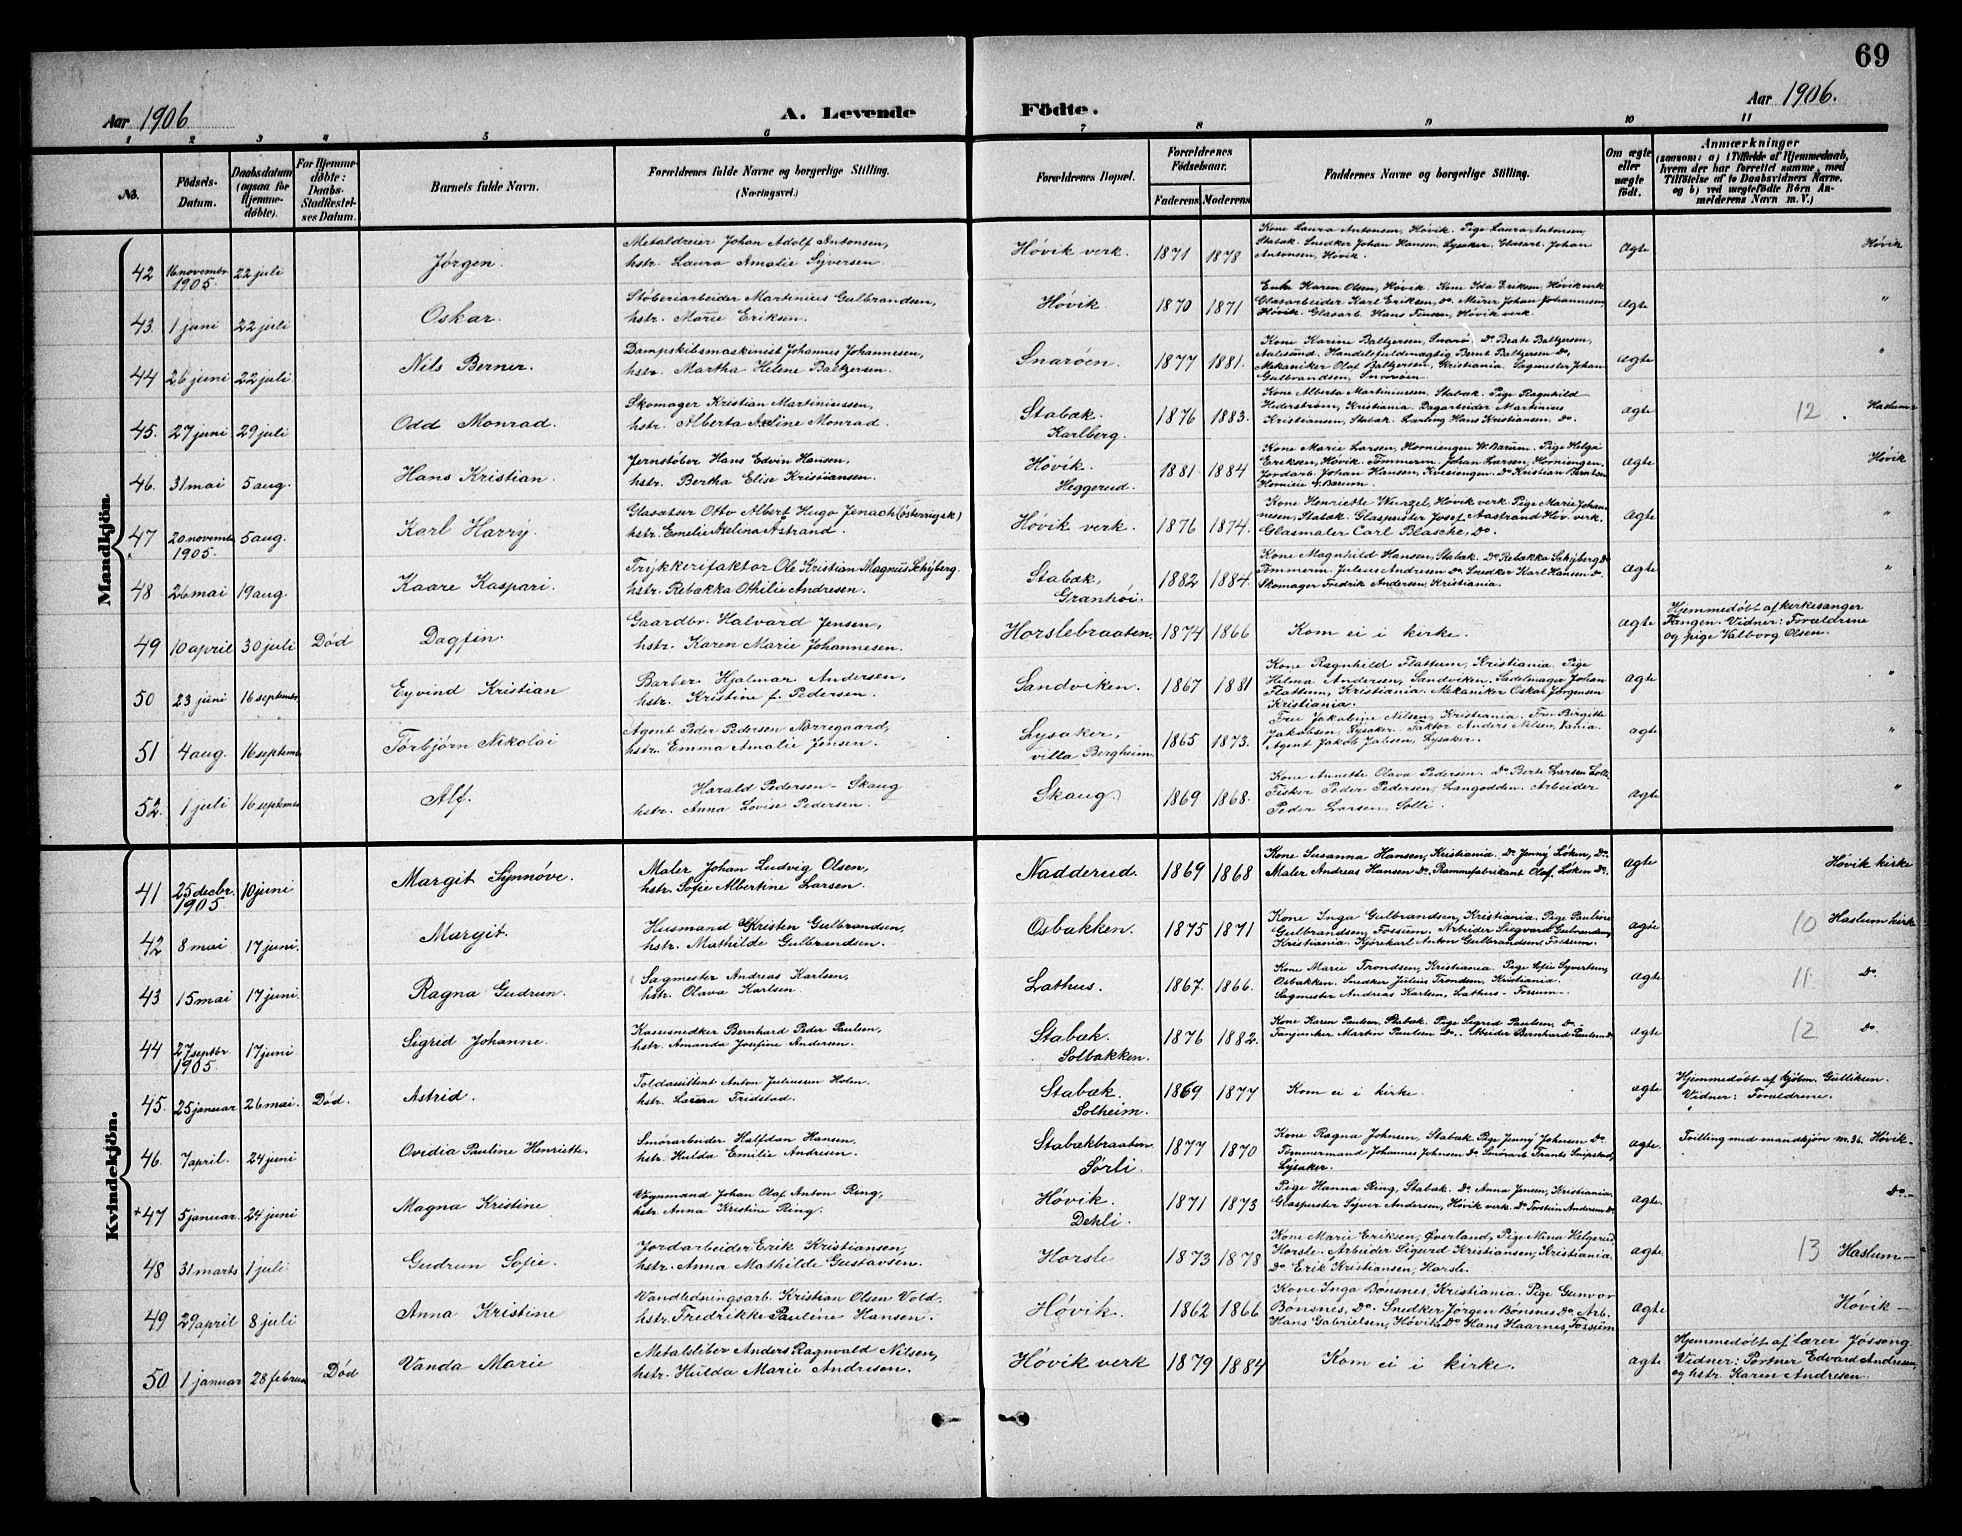 69
Aar 1906
A. Levende Födte.
Aar 1906.
1 2 3 4 5 6 7 8 9 10 11
No.
Födsels-Datum.
Daabsdatum (ogsaa for Hjemmedöbte).
For Hjemmedöbte: Daabs-Stadfæstelses Datum.
Barnets fulde Navn.
Forældrenes fulde Navne og borgerlige Stilling. (Næringsvei.)
Forældrenes Bopæl.
Forældrenes Födselsaar.
Faderens Moderens
Faddernes Navne og borgerlige Stilling.
Om ægte eller uægte födt.
Anmærkninger
(saasom: a) i Tilfælde af Hjemmedaab, hvem der har forrettet samme, med Tilföielse af to Daabsvidners Navne, og b) ved uægtefödte Börn Anmelderens Navn m. V.)
Mandkjön.
42 16 novembr 1905. 22 juli Jørgen. Metaldreier Johan Adolf Antonsen, hstr. Laura Amalie Syversen Høvik verk. 1871 1878 Kone Laura Antonsen, Høvik. Pige Laura Antonsen Stabæk. Snedker Johan Hansen, Lysaker. Glasarb. Johan Antonsen, Høvik. ægte Høvik
43. 1 juni 22 juli Oskar. Støberiarbeider Martinius Gulbrandsen, hstr. Marie Eriksen. Høvik 1870 1871 Enke Karen Olsen, Høvik. Kone Ida Eriksen, Høvik verk Glasarbeider Karl Eriksen, do. Murer Johan Johannesen, Høvik. Glasarb. Hans Finsen, Høvik verk. ægte "
44 26 juni 22 juli. Nils Berner. Dampskibsmaskinist Johannes Johannesen, hstr. Martha Helene Baltzersen. Snarøen. 1877 1881. Kone Karine Baltzersen, Snarø. Do Beate Baltzersen, Aalesund, Handelsfuldmægtig Bernt Baltzersen Do. Mekaniker Olaf Baltzersen, Kristiania. Sagmester Johan Gulbrandsen, Snarøen. ægte "
45. 27 juni 29 juli Odd Monrad. Skomager Kristian Martiniussen, hstr. Alberta Axeline Monrad. Stabæk. Karlberg. 1876 1883. Kone Alberta Martiniussen, Stabæk. Pige Ragnhild Hederstrøm, Kristiania. Dagarbeider Martinius Kristiansen, Stabæk. Lærling Hans Kristiansen, do. ægte 12 Haslum
46. 31 mai 5 aug. Hans Kristian. Jernstøber Hans Edvin Hansen, hstr. Bertha Elise Kristiansen. Høvik. Heggerud. 1881 1884 Kone Marie Larsen, Horniengen V. Bærum. Pige Helga Eriksen, Høvik. Tømmerm. Johan Larsen, Horniengen. Jordarb. Johan Hansen, Do Kristian Berntsen ægte Høvik
47 20 novembr 1905. 5 aug. Karl Harry. Glasætser Otto Albert Hugo Jenach (østerrigsk) hstr. Emelie Axelina Åstrand. Høvik verk. 1876 1874. Kone Henriette Wenzel, Høvik verk. Pige Marie Johannesen, Stabæk. Glaspuster Josef Aastrand Høv. verk. Glasmaler Carl Blasche, Do. ægte "
48 26 mai 19 aug. Kaare Kaspari. Trykkerifaktor Ole Kristian Magnus Schyberg. hstr. Rebakka Othilie Andresen. Stabæk, Granhøi. 1882 1884. Kone Magnhild Hansen, Stabæk. Do Rebakka Schyberg Do Tømmerm. Julius Andresen Do. Snedker Karl Hansen. Do. Skomager Fredrik Andersen, Kristiania. ægte "
49 10 april 30 juli Død Dagfin. Gaardbr. Halvard Jensen, hstr. Karen Marie Johannesen. Horslebraaten. 1874 1866 Kom ei i kirke. ægte Hjemmedøbt af kirkesanger Fangen. Vidner: Forældrene og pige Valborg Olsen.
50 23 juni 16 septembr. Eyvind Kristian Barber Hjalmar Andersen, hstr. Kristine f. Pedersen. Sandviken. 1867 1881 Kone Ragnhild Flattum, Kristiania. Pige Helma Andersen, Sandviken. Sadelmager Johan Flattum, Kristiania. Mekaniker Oskar Jørgensen Kristiania. ægte "
51 4 aug. 16 septembr Torbjørn Nikolai Agent Peder Pedersen Nørregaard, hstr. Emma Amalie Jensen. Lysaker, villa Bergheim. 1865 1873. Fru Jakobine Nilsen, Kristiania. Fru Birgitte Jakobsen, Lysaker. Faktor Anders Nilsen, Agent Jakob Lysaker. ægte "
52. 1 juli 16 septembr Alf. Harald Pedersen - Skaug hstr. Anna Lovise Pedersen. Skaug. 1869 1868. Kone Annette Olava Pedersen. Do Berte Larsen Solli. Fisker Peder Pedersen, Langodden. Arbeider Peder Larsen, Solli. ægte "
Kvindekjön.
41 25 decbr. 1905 10 juni Margit Synnøve. Maler Johan Ludvig Olsen, hstr. Sofie Albertine Larsen. Nadderud. 1869 1868 Kone Susanna Hansen, Kristiania. Do Jenny Løken, Do. Maler Andreas Hansen Do. Rammefabrikant Olaf Løken Do. ægte Høvik kirke
42 8 mai 17 juni. Margit. Husmand Kristen Gulbrandsen, hstr. Mathilde Gulbrandsen. Osbakken. 1875 1871 Kone Inga Gulbrandsen, Kristiania. Pige Pauline Gulbrandsen, Fossum. Arbeider Siegvard Gulbrandsen, Kristiania. Kjørekarl Anton Gulbrandsen, Fossum. ægte 10 Haslum kirke
43 15 mai 17 juni. Ragna Gudrun. Sagmester Andreas Karlsen, hstr. Olava Karlsen. Lathus. 1867. 1866. Kone Marie Trondsen, Kristiania. Pige Sofie Syvertsen, Osbakken. Snedker Julius Trondsen, Kristiania. Sagmester Andreas Karlsen, Lathus - Fossum. ægte 11 Do
44 27 septbr 1905. 17 juni Sigrid Johanne. Kassesnedker Bernhard Peder Paulsen, hstr. Amanda Josefine Andersen. Stabæk Solbakken. 1876 1882. Kone Karen Paulsen, Stabæk. Pige Sigrid Paulsen, Do. Martin Paulsen Do. Arbeider Bernhard Paulsen Do ægte 12 Do
45. 25 januar 26 mai. Død. Astrid. Toldassistent Anton Juliussen Holm. hstr. Laura Fridstad. Stabæk. Solheim. 1869 1877 Kom ei i kirke. ægte Hjemmedøbt af kjøbm. Gulliksen. Vidner: Forældrene.
46. 7 april. 24 juni Ovidia Pauline Henriette. Smørarbeider Halfdan Hansen, hstr. Hulda Emilie Andresen. Stabækbraaten Sørli. 1877 1870 Kone Ragna Johnsen, Stabæk. Pige Jenny Johnsen Do. Tømmermand Johannes Johnsen Do Smørarb. Frants Snipstad, Lysaker. ægte. Tvilling med mandkjøn nr. 36. Høvik -
+47 5 januar. 24 juni Magna Kristine Vognmand Johan Olaf Anton Ring, hstr. Anna Kristine Ring. Høvik. Dehli. 1871 1873 Pige Hanna Ring, Stabæk. Do. Anna Jensen, Kristiania. Glaspuster Syver Andersen, Høvik verk. Do Torstein Andersen Do. ægte Do -
48 31 marts 1 juli Gudrun Sofie. Jordarbeider Erik Kristiansen, hstr. Anna Mathilde Gustavsen. Horsle 1873 1878 Kone Marie Eriksen, Øverland, Pige Mina Helgerud, Horsle. Arbeider Sigurd Kristiansen, Kristiania. Do. Erik Kristiansen, Horsle. ægte 13 Haslum -
49 29 april 8 juli Anna Kristine Vandledningsarb. Kristian Olsen Vold. hstr. Fredrikke Pauline Hansen. Høvik. 1862 1866 Kone Inga Bønsnes, Kristiania. Pige Gunvor Bønsnes, Do. Snedker Jørgen Bønsnes Do. Arb. Hans Gabrielsen, Høvik. Do Hans Haarnes, Fossum ægte Høvik -
50 1 januar 28 februar Død Vanda Marie Metalsliber Anders Ragnvald Nilsen, hstr. Hulda Marie Andresen. Høvik verk 1879 1884 Kom ei i kirke. ægte Hjemmedøbt af lærer Jøssong. Vidner: Portner Edvard Andresen, og hstr. Karen Andresen.